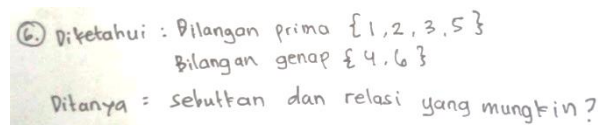 6. Diketahui : Bilangan prima {1, 2, 3, 5}
Bilangan genap {4, 6}
Ditanya = sebutkan dan relasi yang mungkin?